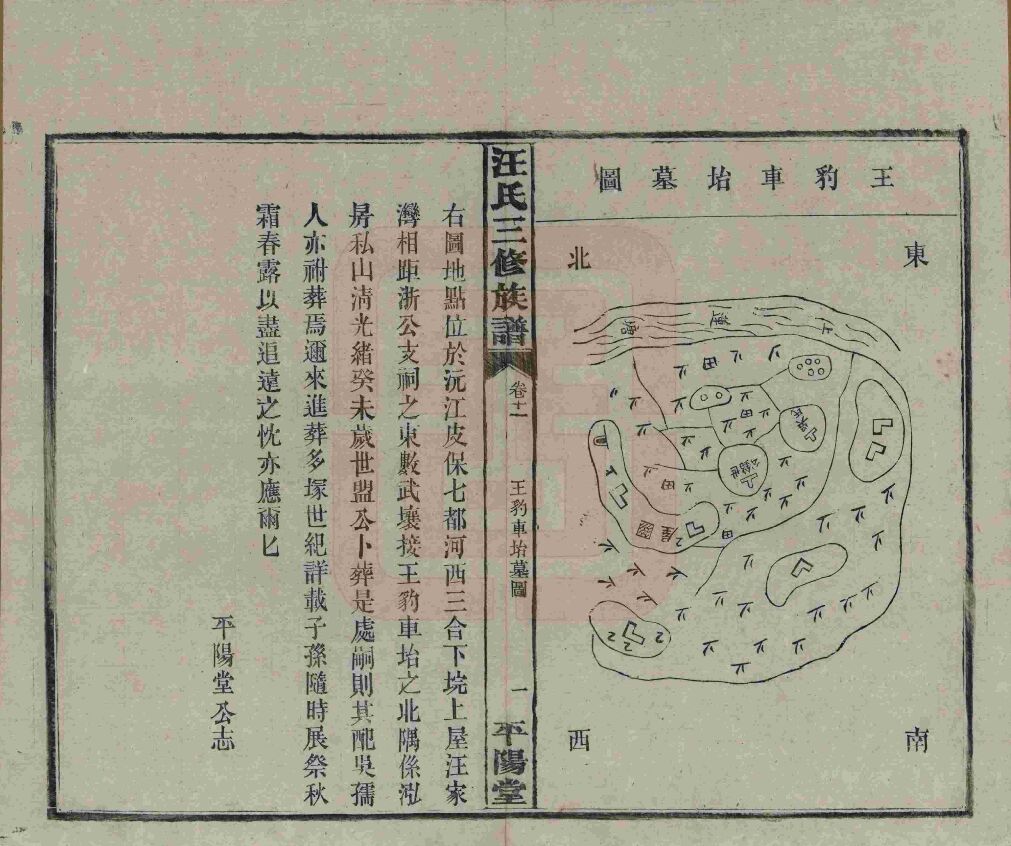 王豹車坮墓圖
東
北
上
東
田
田
田
田
吳氏
世盟公
屋園
南
西
汪氏三修族譜
卷十一
王豹車坮墓圖
一
平陽堂
右圖地點位於沅江皮保七都河西三合下垸上屋汪家
灣相距浙公支祠之東數武壤接王豹車坮之北隅係泓
昺私山清光緒癸未歲世盟公卜葬是處嗣則其配吳孺
人亦祔葬焉邇來進葬多塚世紀詳載子孫隨時展祭秋
霜春露以盡追遠之忱亦應爾乜
平陽堂公志